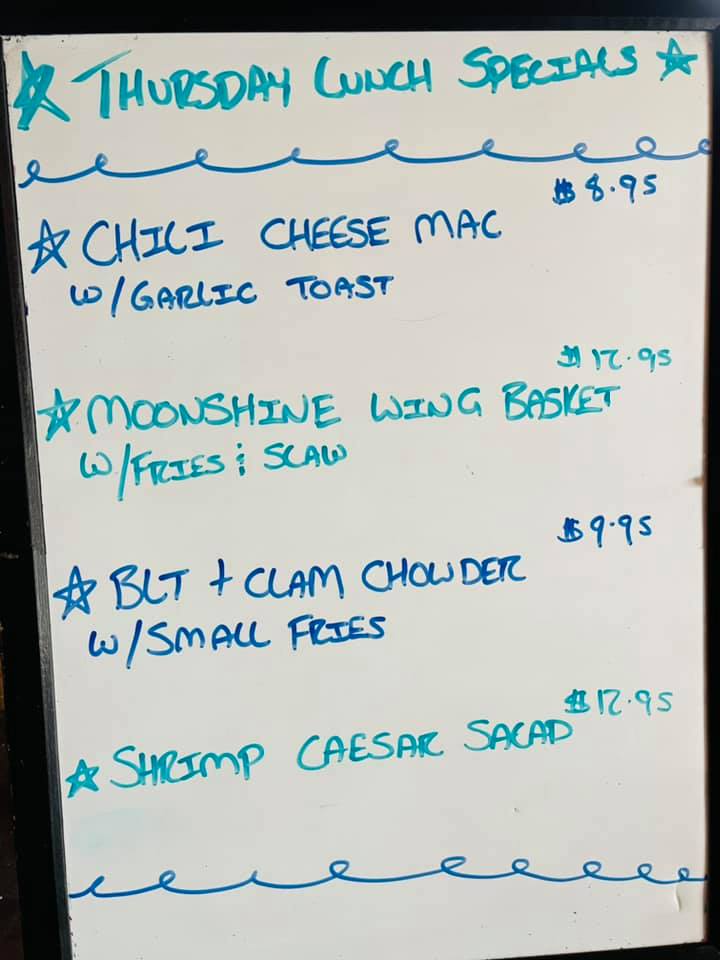 THURSDAY LUNCH SPECIALS
$8.95
CHILI CHEESE MAC
W/GARLIC TOAST
$12.95
MOONSHINE WING BASKET
W/FRIES & SLAW
$9.95
BLT + CLAM CHOWDER
W/SMALL FRIES
$12.95
SHRIMP CAESAR SALAD